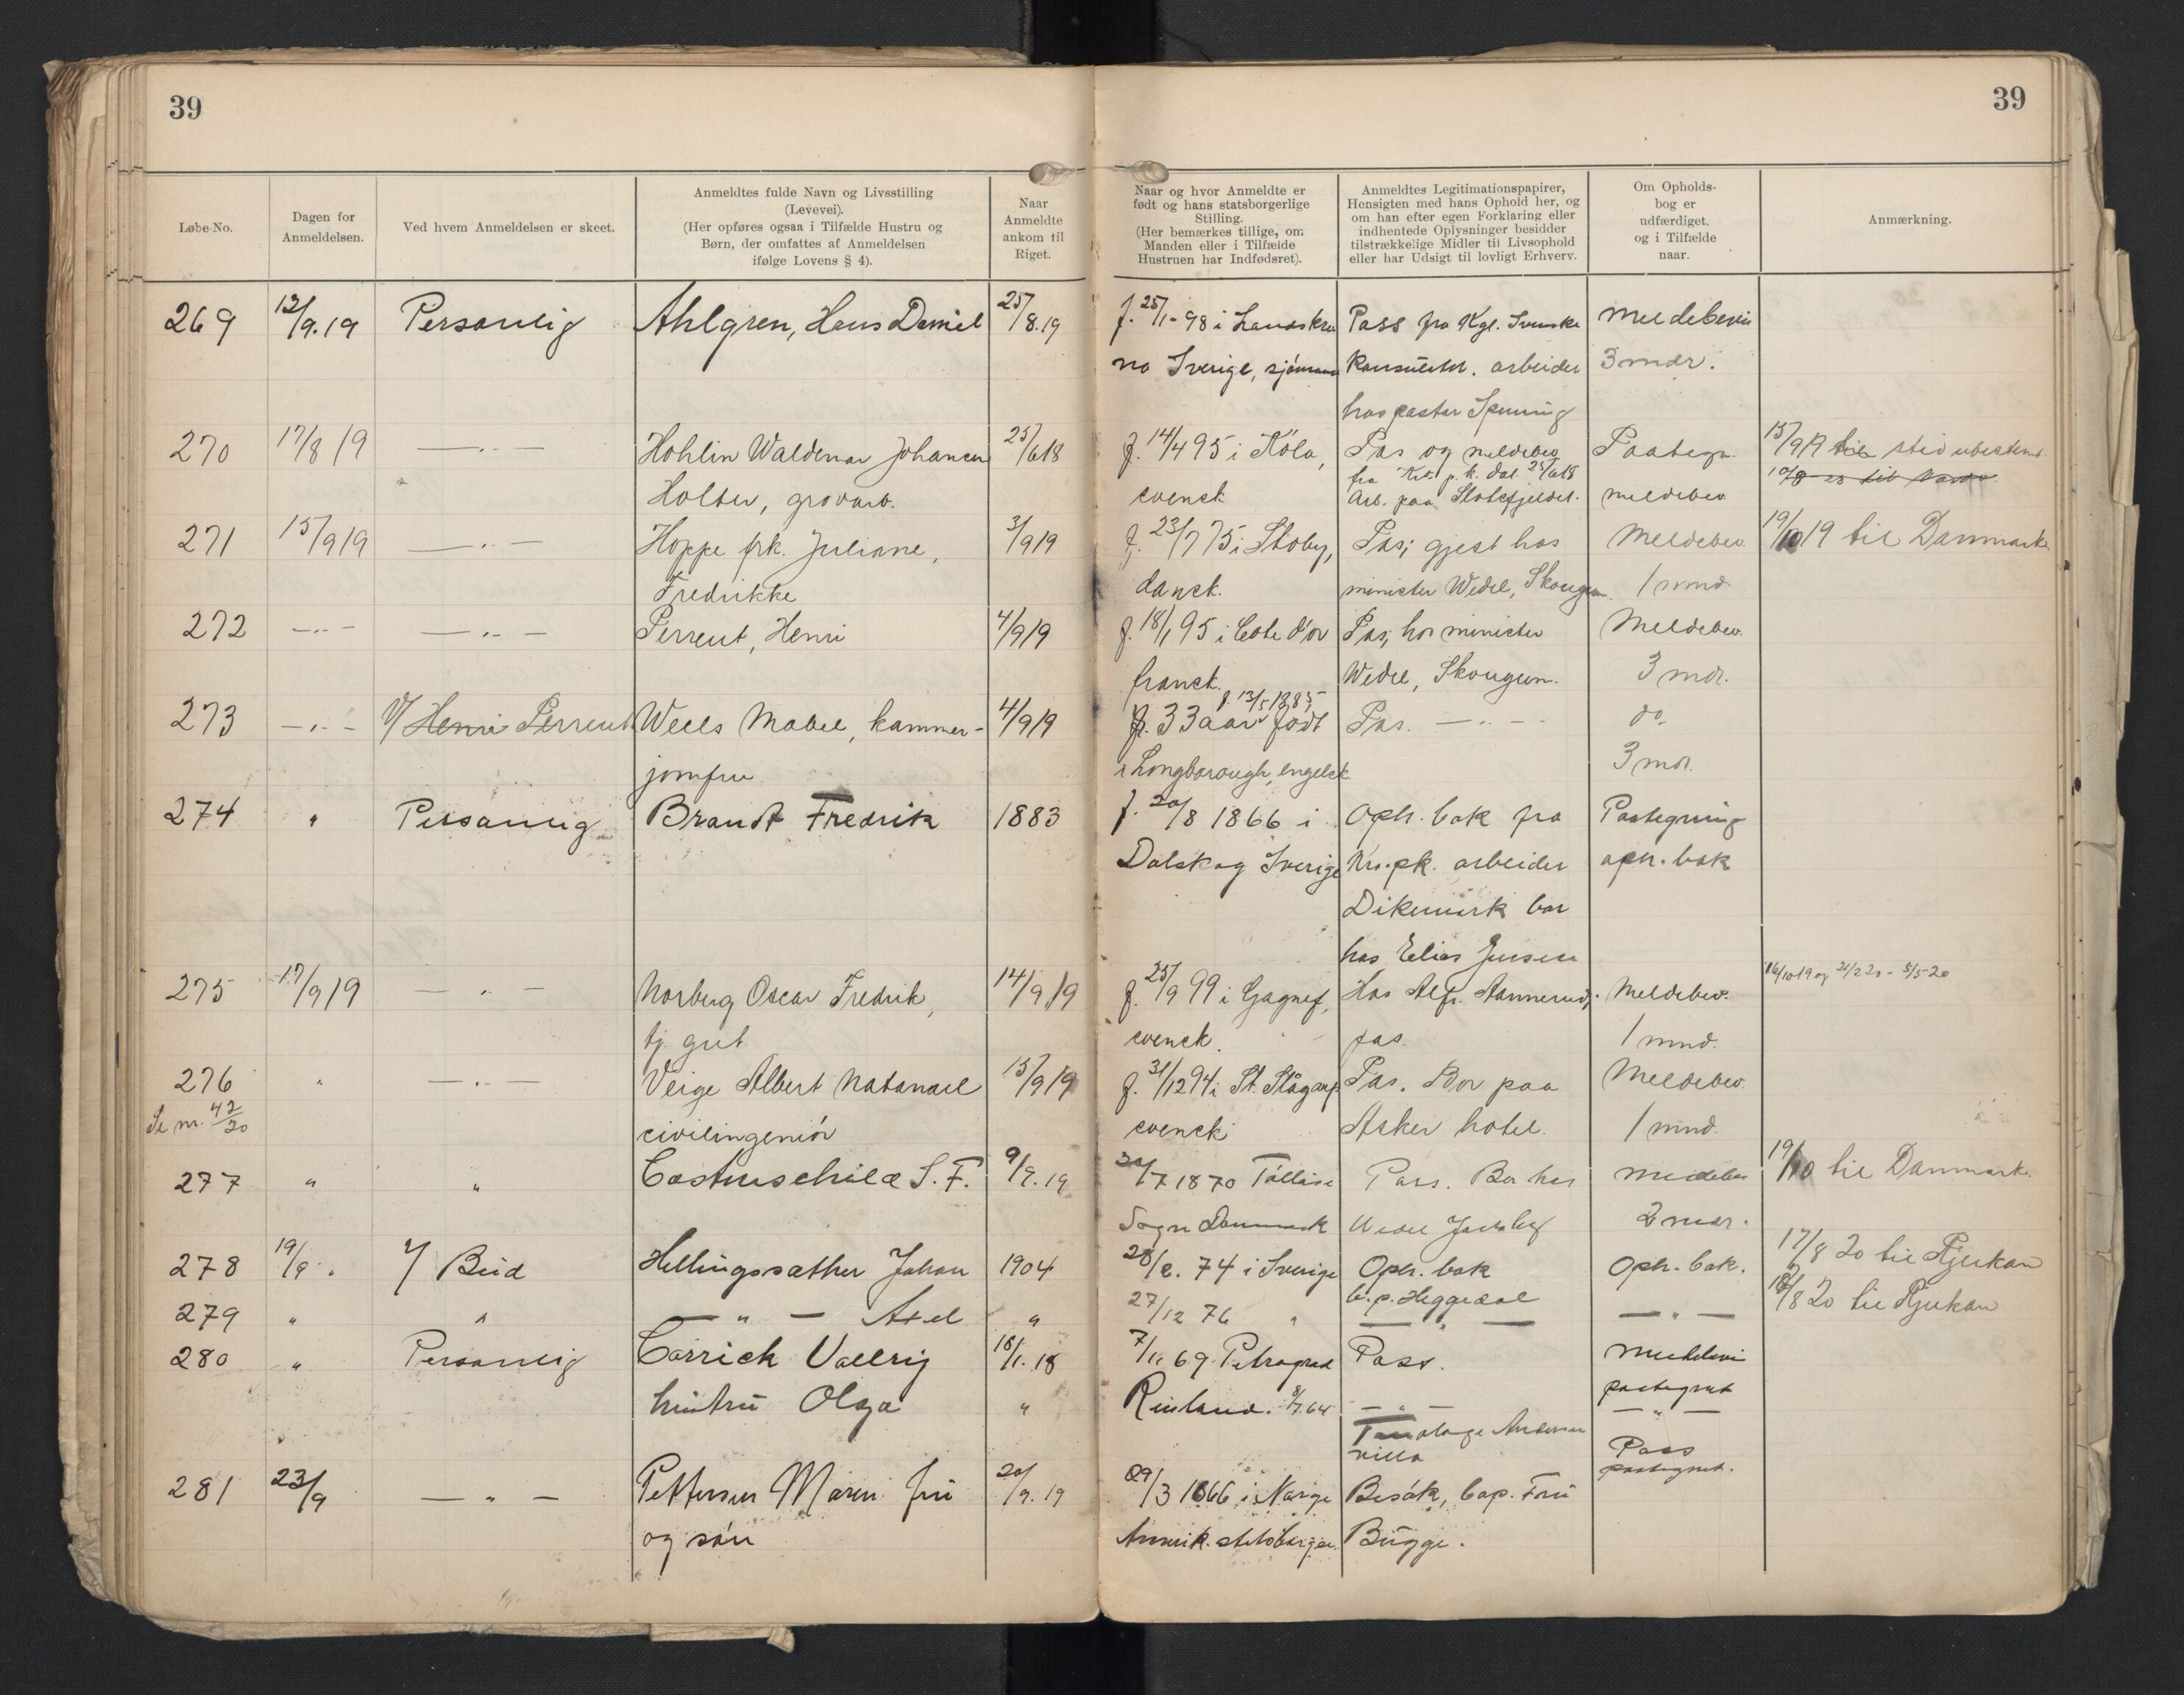 39
39
Løbe-No.
Dagen for Anmeldelsen.
Ved hvem Anmeldelsen er skeet.
Anmeldtes fulde Navn og Livsstilling
(Levevei).
(Her opføres ogsaa i Tilfælde Hustru og
Børn, der omfattes af Anmeldelsen
ifølge Lovens § 4).
Naar
Anmeldte
ankom til
Riget.
Naar og hvor Anmeldte er
født og hans statsborgerlige
Stilling.
(Her bemærkes tillige, om
Manden eller i Tilfælde
Hustruen har Indfødsret).
Anmeldtes Legitimationspapirer,
Hensigten med hans Ophold her, og
om han efter egen Forklaring eller
indhentede Oplysninger besidder
tilstrækkelige Midler til Livsophold
eller har Udsigt til lovligt Erhverv.
Om Opholds-
bog er
udfærdiget,
og i Tilfælde
naar.
Anmærkning.
269 12/9.19 Personlig Ahlgren, Hans Daniel 25/8.19 f. 25/1-98 i Landskro Pass fra Kgl. Svenske Meldebevis
na Sverige, sjömann Konsulat. arbeider 3 mdr.
hos pastor
270 17/8 19 —〃— Hohlin Waldemar Johannes 25/618 f. 14/4 95 i Köla, Pas og meldebev. Paategn. 15/919 til sted ubestemt
fra Kr. p. k. dat. 25/618
Holter, grovarb. svensk Arb. paa Slotsfjeldet. meldebev.
271 15/919 —〃— Hoppe frk. Juliane, 3/919 f. 23/7 75 i Stoby, Pas; gjest hos Meldebev. 19/10 19 til Danmark.
Fredrikke dansk. minister Wedel, Skougum. 1 mnd.
272 —〃— —〃— Perreut, Henri 4/919 f. 18/1 95 i Cote d'or Pas, hos minister Meldebev.
fransk. Wedel, Skougum. 3 mdr.
f. 13/5 1885
273 —〃— v/ Henri Perreut Wells Mabel, kammer- 4/919 f. 33 aar født Pas. —〃— do
jomfru i Longborough, engelsk 3 md.
274 〃 Personlig Brandt Fredrik 1883 f. 20/8 1866 i Oph. bok fra Paategning
Dalskog Sverige Kr. pk. arbeider oph. bok
Dikemark bor
hos Elias Jensen
275 17/919 —〃— Norberg Oscar Fredrik, 14/919 f. 25/9 99 i Gagnef, Hos Alfr. Aannerud, Meldebev. 16/1019 og 21/2 20 - 5/5-20
tj. gut. svensk. pas. 1 mnd.
276 〃 —〃— Veige Albert Natanael 15/919 f. 31/1294 i St. Slågarp Pas. Bor paa Meldebev.
Se nr. 42/20 civilingeniör svensk Asker hotel. 1 mnd.
277 〃 〃 Castenschild S. F. 9/9.19 30/7 1870 Tölløse Pass. Bor hos meldebev 19/10 til Danmark.
Sogn Danmark Wedel Jarlsberg 2 mdr.
278 19/9 〃 v/ Bud Hellingssæther Johan 1904 28/2. 74 i Sverige Oph. bok Oph. bok. 17/8 20 til Rjukan
279 〃 〃 —〃— Axel 〃 27/12 76 〃 b. p. Heggedal —〃— 18/8 20 til Rjukan
280 〃 Personlig Carrick Vallrig 18/1. 18 7/11 69 Petrograd Pass. Meldebevi
paategnet
hustru Olga 〃 Rusland. 8/7.64 —〃— —〃—
villa
281 23/9 —〃— Pettersen Maren fru 20/9. 19 29/3 1866 i Norge Besøk, Cap. Fru Pass
paategnet.
og søn Amerik. statsborger. Bugge.